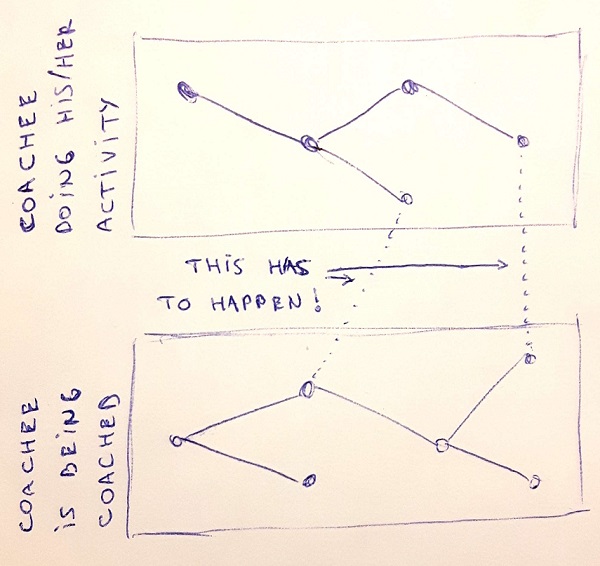 COACHEE
DOING HIS/HER
ACTIVITY
THIS HAS
TO HAPPEN!
COACHEE
IS BEING
COACHED